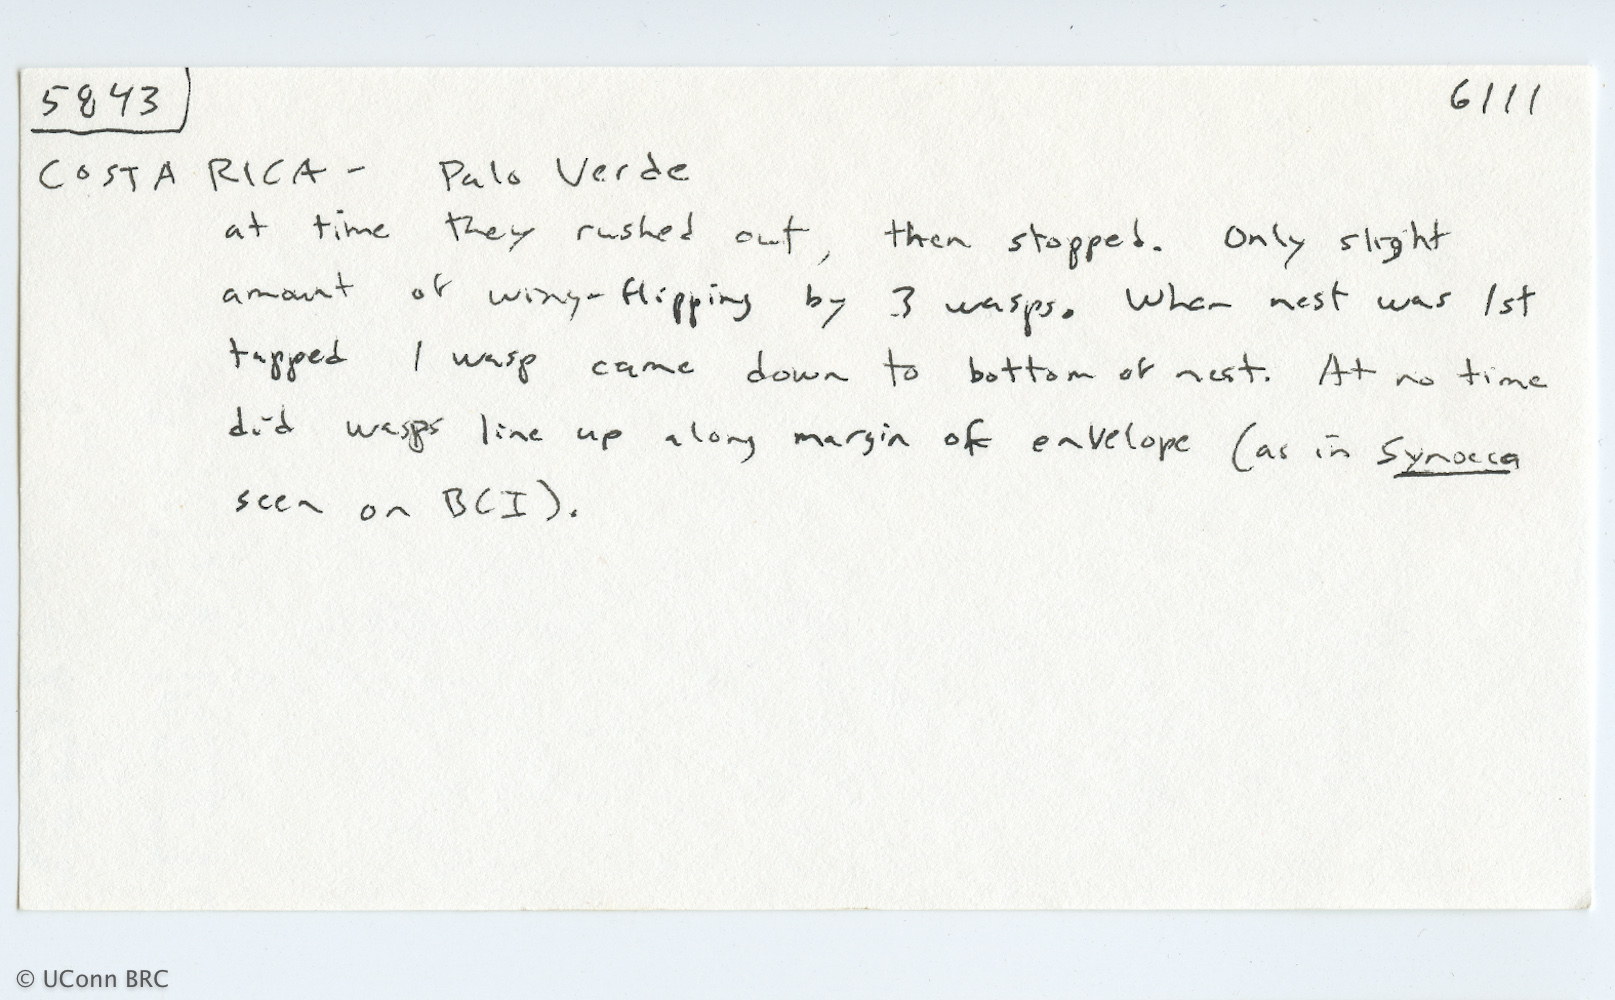 5843 6111
COSTA RICA - Palo Verde
at time they rushed out, then stopped. Only slight
amount of wing-flipping by 3 wasps. When nest was 1st
tapped 1 wasp came down to bottom of nest. At no time
did wasps line up along margin of envelope (as in Synoeca
seen on BCI).
© UConn BRC